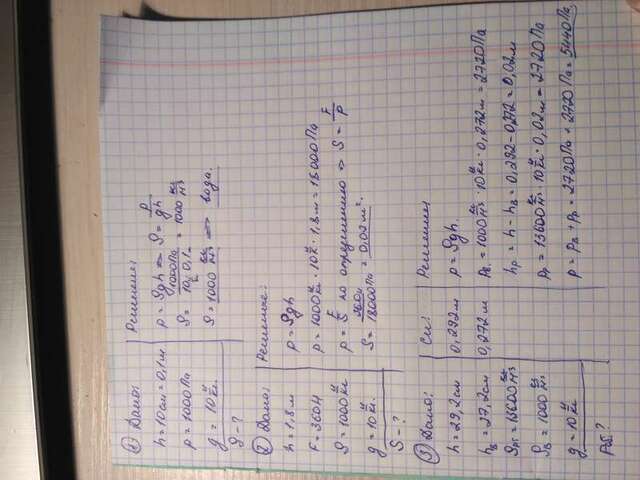 ① Дано:
h = 10 см = 0,1 м
p = 1000 Па
g = 10 Н/кг
ρ - ?
Решение:
p = ρgh ⇒ ρ = p/gh
ρ = 1000 Па / 10 Н/кг · 0,1 м = 1000 кг/м³
ρ = 1000 кг/м³ ⇒ вода.
② Дано:
h = 1,8 м
F = 360 Н
ρ = 1000 кг
g = 10 Н/кг.
S = ?
Решение:
p = ρgh
p = 1000 кг · 10 Н/кг · 1,8 м = 18000 Па
p = F/S по определению ⇒ S = F/p
S = 360 Н / 18000 Па = 0,02 м².
③ Дано:
h = 29,2 см
hв = 27,2 см
ρрт = 13600 кг/м³
ρв = 1000 кг/м³
g = 10 Н/кг
Рд?
Си:
0,292 м
0,272 м
Решение:
p = ρgh.
pв = 1000 кг/м³ · 10 Н/кг · 0,272 м = 2720 Па
hр = h - hв = 0,292 - 0,272 = 0,02 м
pр = 13600 кг/м³ · 10 Н/кг · 0,02 м = 2720 Па
p = pв + pр = 2720 Па + 2720 Па = 5440 Па